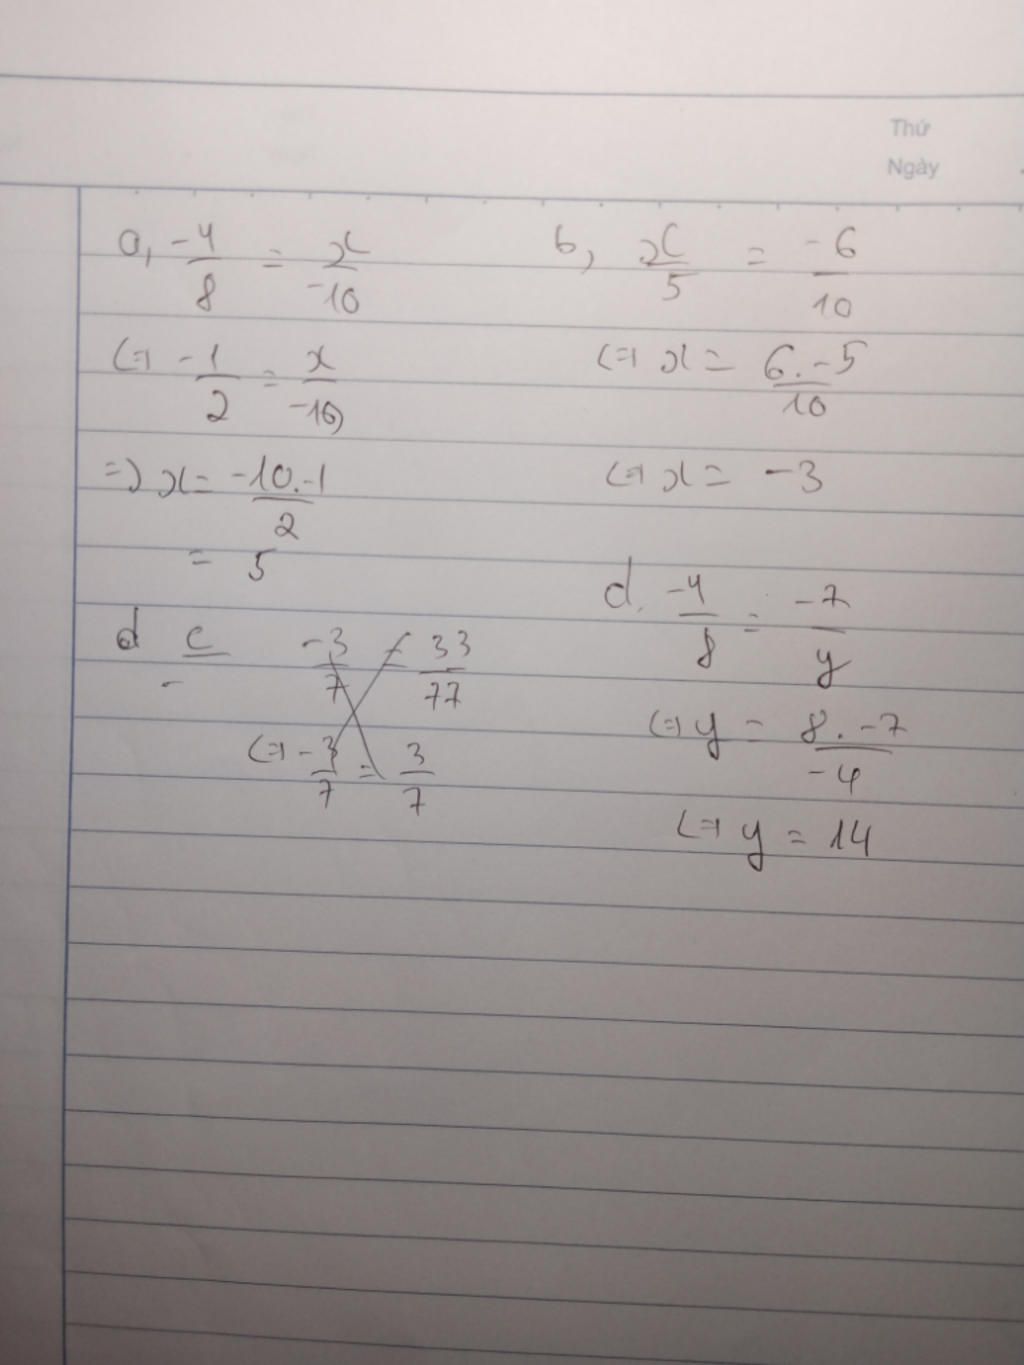 Thứ
Ngày
a, -4/8 = x/-10
⇔ -1/2 = x/-10
⇒ x = -10.-1/2
= 5
b, x/5 = -6/10
⇔ x = 6.-5/10
⇔ x = -3
d c -3/7 = 33/77
⇔ -3/7 = 3/7
d. -4/8 = -7/y
⇔ y = 8.-7/-4
⇔ y = 14